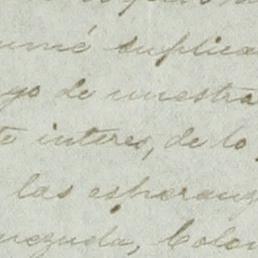 umé suplica
yo de nuestra
te interes, de lo
las esperanz
nezuela, Colom